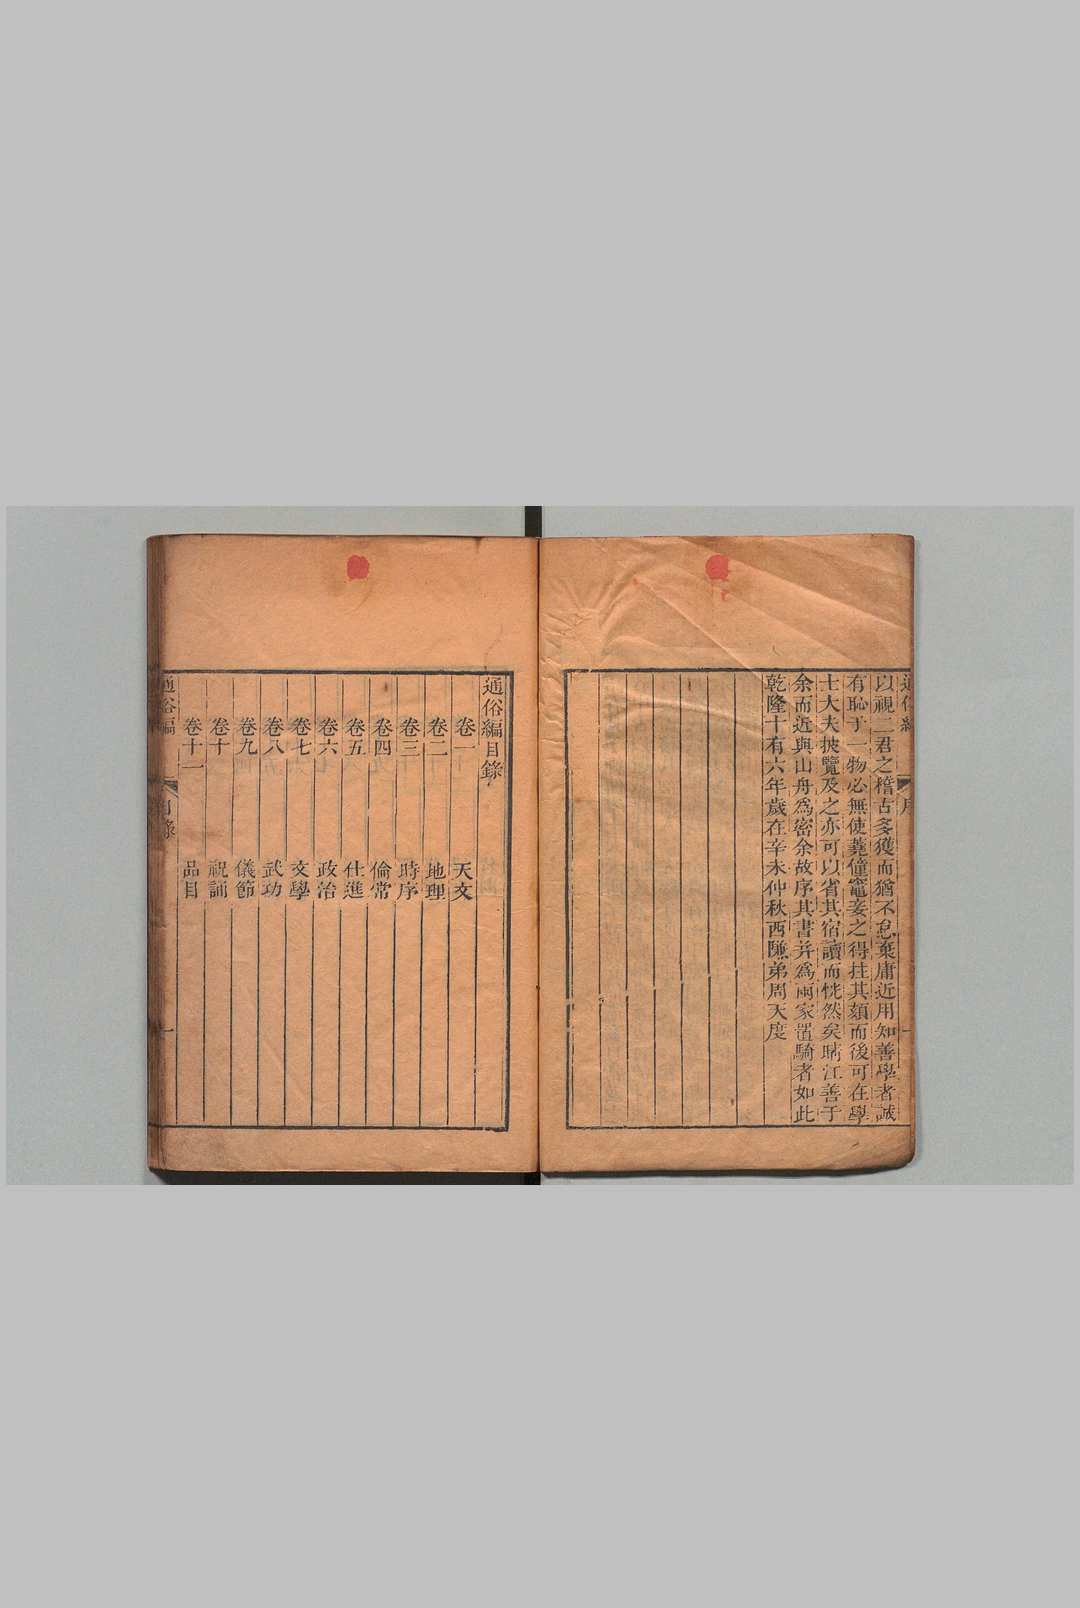 通俗編 序 一
以視二君之稽古多獲而猶不怠棄庸近用知善學者誠
有恥于一物必無使薧僮竈妾之得拄其頟而後可在學
士大夫披覽及之亦可以省其宿讀而恍然矣晴江善于
余而近與山舟爲密余故序其書并爲兩家置騎者如此
乾隆十有六年歲在辛未仲秋西隒弟周天度
通俗編目錄
卷一 天文
卷二 地理
卷三 時序
卷四 倫常
卷五 仕進
卷六 政治
卷七 文學
卷八 武功
卷九 儀節
卷十 祝誦
卷十一 品目
通俗編 目錄 一